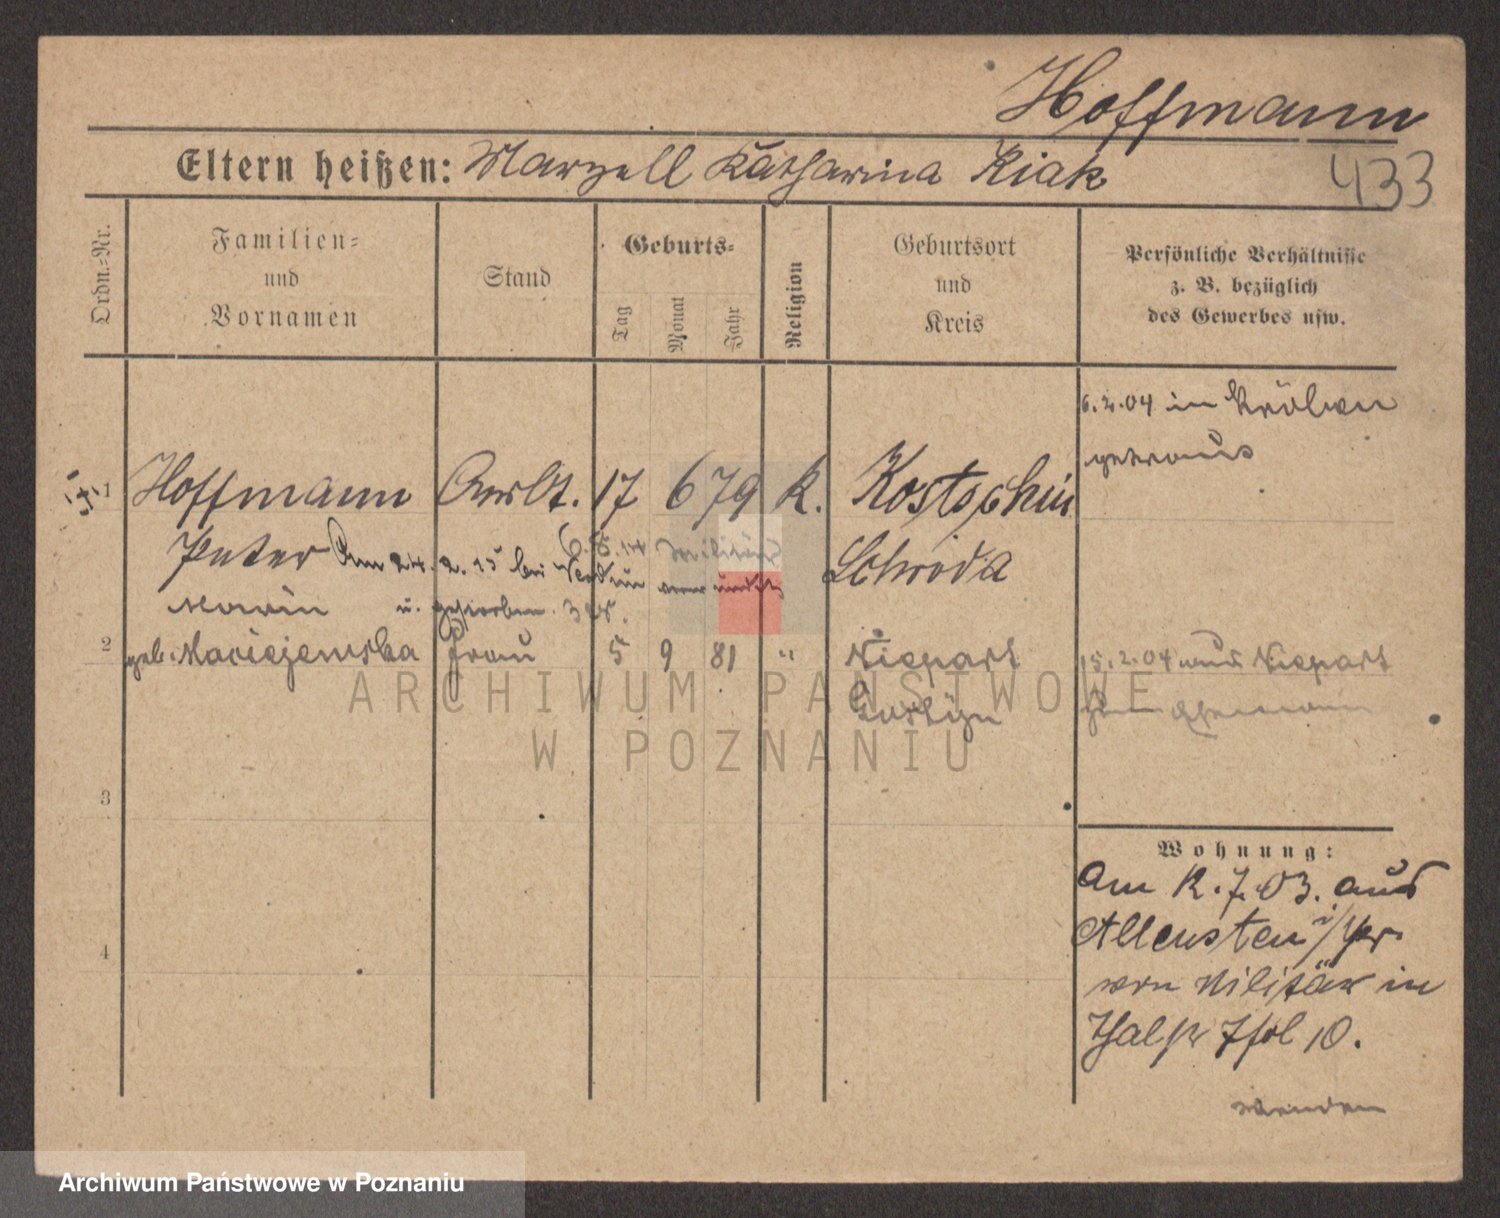 Hoffmann
433
Eltern heißen: Marzell Katharina Kiak
Ordn.-Nr.
Familien-
und
Vornamen
Stand
Geburts-
Tag
Monat
Jahr
Religion
Geburtsort
und
Kreis
Persönliche Verhältnisse
z. B. bezüglich
des Gewerbes usw.
6.2.04 in Kröben
getraut
1 Hoffmann Arbt. 17 6 79 K. Kostschin
6.8.14 Militär
Peter Am 24.2.15 bei Verdun verwundet Schroda
u. gestorben.
2 geb. Maciejewska Frau 5 9 81 " Niepart
15.2.04 aus Niepart
Gostyn
zum Ehemann
3
4
Wohnung:
Am 12.7.03. aus
Allenstein i/Pr.
vom Militär in
10.
wenden
ARCHIWUM PAŃSTWOWE
W POZNANIU
Archiwum Państwowe w Poznaniu